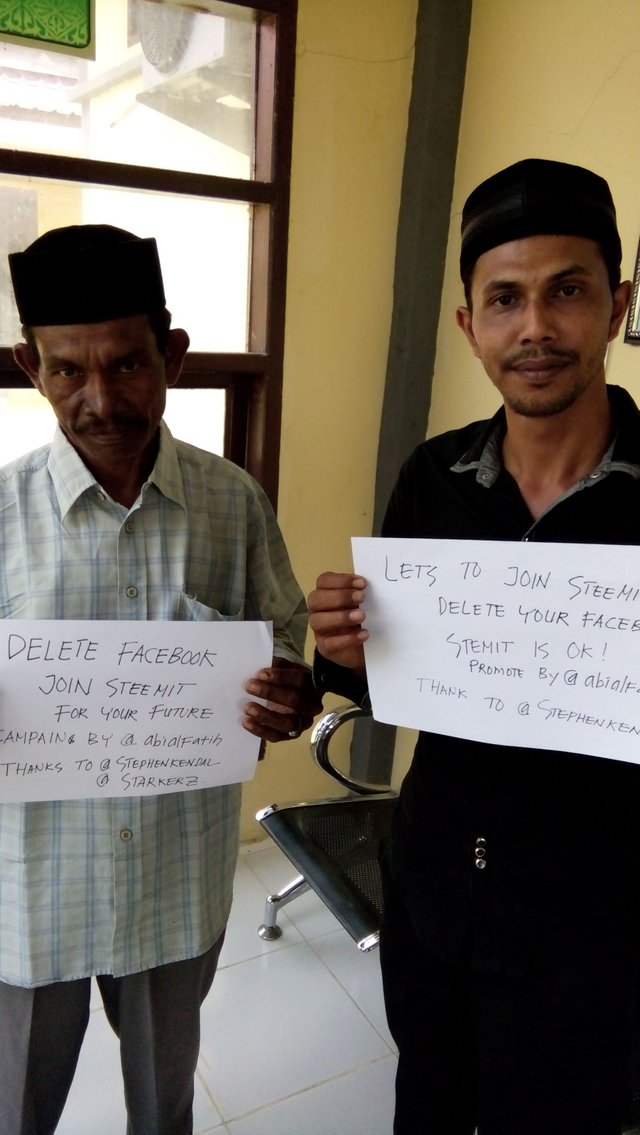 DELETE FACEBOOK
JOIN STEEMIT
FOR YOUR FUTURE
CAMPAING BY @ abialFatih
THANKS TO @ STEPHENKENDAL
@ STARKERZ.
LETS TO JOIN STEEMI
DELETE YOUR FACEB
STEMIT IS OK!
PROMOTE BY @ abialFa
THANK TO @ STEPHENKEN